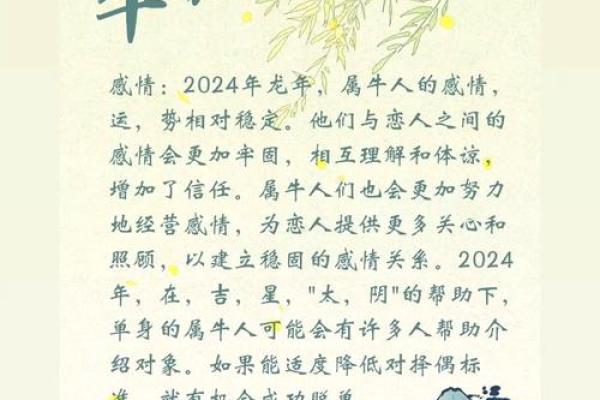 感情：2024年龙年，属牛人的感情，
运，势相对稳定。他们与恋人之间的
感情会更加牢固，相互理解和体谅，
增加了信任。属牛人们也会更加努力
地经营感情，为恋人提供更多关心和
照顾，以建立稳固的感情关系。2024
年，在，吉，星，"太，阴"的帮助下，
单身的属牛人可能会有许多人帮助介
绍对象。如果能适度降低对择偶标
准，就有机会成功脱单